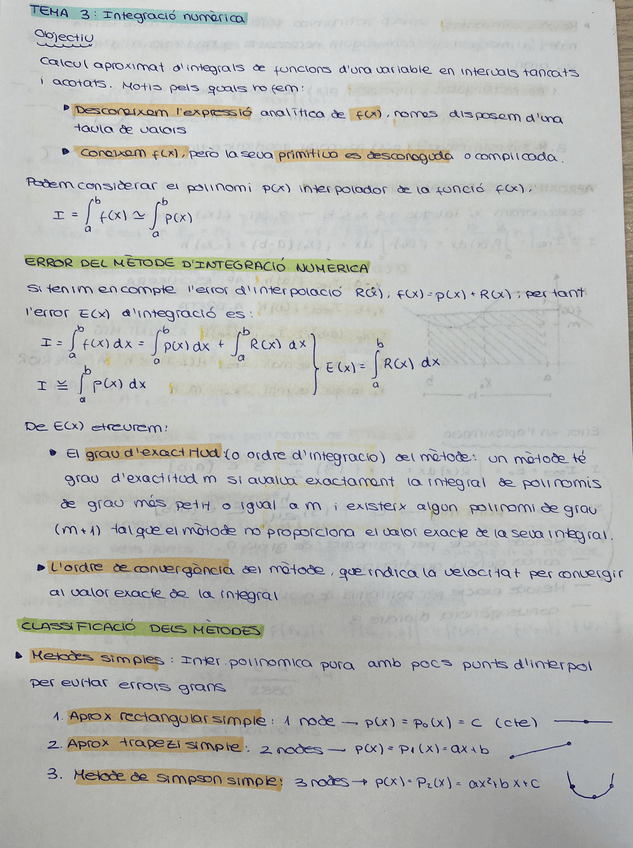 TEMA 3: Integració numèrica
Objectiu
Calcul aproximat d'integrals de funcions d'una variable en intervals tancats
i acotats. Motis pels quals ho fem:
▸ Desconeixem l'expressió analítica de f(x), nomes disposem d'una
taula de valors
▸ Coneixem f(x), pero la seva primitiva es desconeguda o complicada.
Podem considerar el polinomi p(x) interpolador de la funció f(x),
I = ∫_a^b f(x) ≃ ∫_a^b p(x)
ERROR DEL MÈTODE D'INTEGRACIÓ NUMÈRICA
Si tenim en compte l'error d'interpolació R(x), f(x) = p(x) + R(x); per tant
l'error E(x) d'integració es:
I = ∫_a^b f(x) dx = ∫_a^b p(x) dx + ∫_a^b R(x) dx } E(x) = ∫_a^b R(x) dx
I ≅ ∫_a^b p(x) dx
De E(x) etreurem:
• El grau d'exactitud (o ordre d'integracio) del mètode: un mètode té
grau d'exactitud m si avalua exactament la integral de polinomis
de grau més petit o igual a m i existeix algun polinomi de grau
(m+1) tal que el mètode no proporciona el valor exacte de la seva integral.
▸ L'ordre de convergència del mètode, que indica la velocitat per convergir
al valor exacte de la integral
CLASSIFICACIÓ DELS MÈTODES
▸ Metodes simples: Inter. polinomica pura amb pocs punts d'interpol
per evitar errors grans
1. Aprox rectangular simple: 1 node → p(x) = p₀(x) = c (cte)
2. Aprox trapezi simple: 2 nodes → p(x) = p₁(x) = ax+b
3. Metode de Simpson simple: 3 nodes → p(x) = P₂(x) = ax²+bx+c